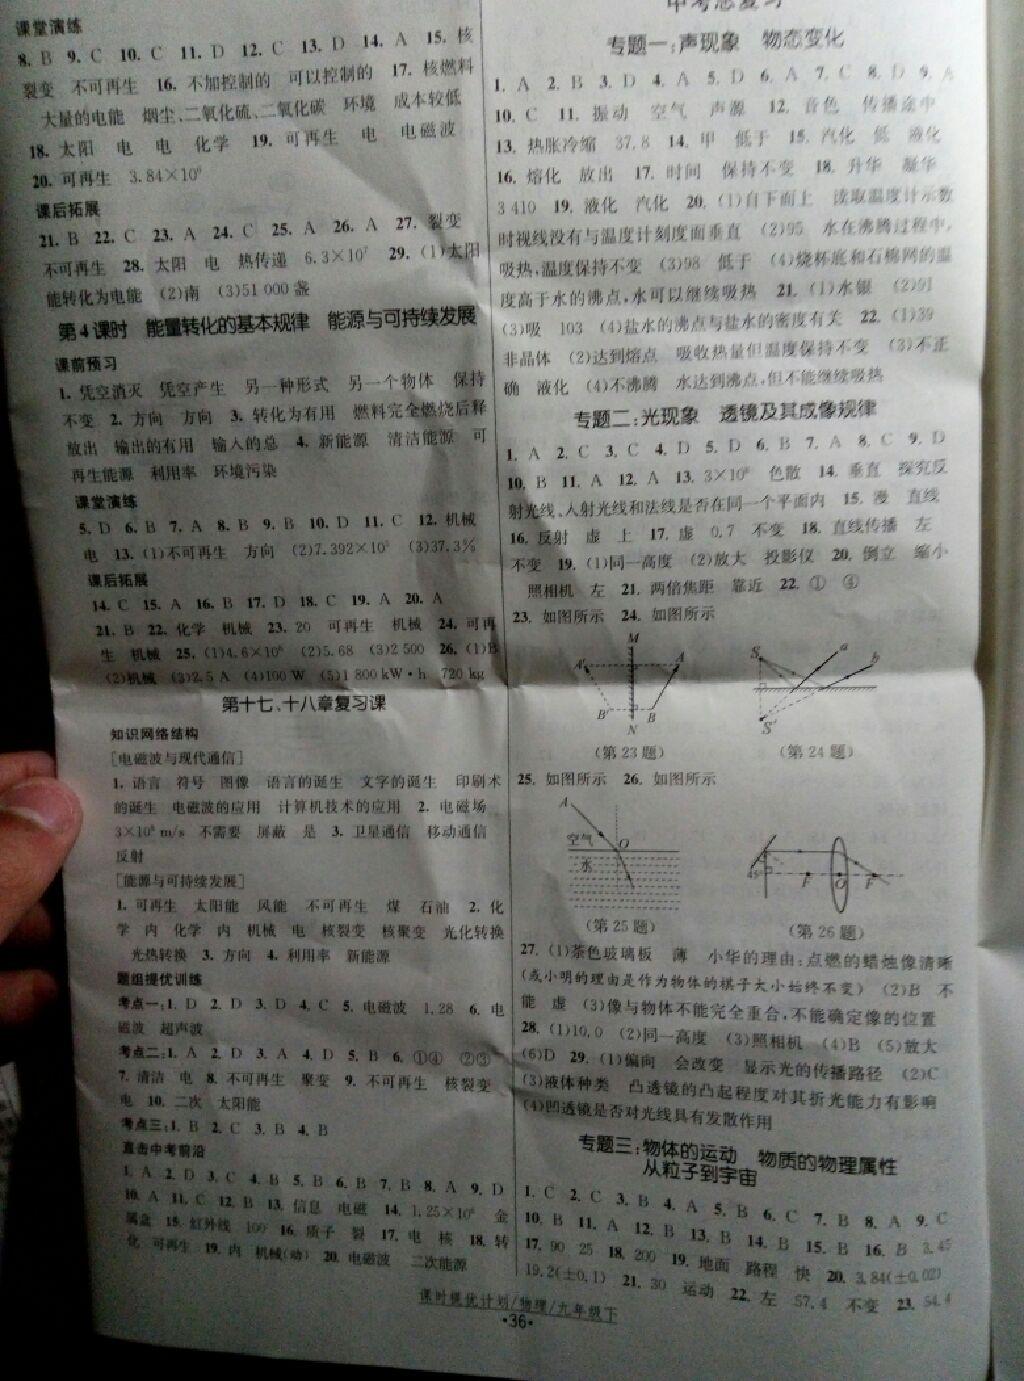 课堂演练
8. B 9. C 10. C 11. D 12. C 13. D 14. A 15. 核
裂变 不可再生 16. 不加控制的 可以控制的 17. 核燃料
大量的电能 烟尘、二氧化硫、二氧化碳 环境 成本较低
18. 太阳 电 电 化学 19. 可再生 电 电磁波
20. 可再生 3.84×10⁹
课后拓展
21. B 22. C 23. A 24. C 25. A 26. A 27. 裂变
不可再生 28. 太阳 电 热传递 6.3×10⁷ 29. (1)太阳
能转化为电能 (2)南 (3)51 000 盏
第 4 课时 能量转化的基本规律 能源与可持续发展
课前预习
1. 凭空消灭 凭空产生 另一种形式 另一个物体 保持
不变 2. 方向 方向 3. 转化为有用 燃料完全燃烧后释
放出 输出的有用 输入的总 4. 新能源 清洁能源 可
再生能源 利用率 环境污染
课堂演练
5. D 6. B 7. A 8. B 9. B 10. D 11. C 12. 机械
电 13. (1)不可再生 方向 (2)7.392×10⁵ (3)37.3%
课后拓展
14. C 15. A 16. B 17. D 18. C 19. A 20. A
21. B 22. 化学 机械 23. 20 可再生 机械 24. 可再
生 机械 25. (1)4.6×10⁶ (2)5.68 (3)2 500 26. (1)B
(2)机械 (3)2.5 A (4)100 W (5)1 800 kW·h 720 kg
第十七、十八章复习课
知识网络结构
[电磁波与现代通信]
1. 语言 符号 图像 语言的诞生 文字的诞生 印刷术
的诞生 电磁波的应用 计算机技术的应用 2. 电磁场
3×10⁸ m/s 不需要 屏蔽 是 3. 卫星通信 移动通信
反射
[能源与可持续发展]
1. 可再生 太阳能 风能 不可再生 煤 石油 2. 化
学 内 化学 内 机械 电 核裂变 核聚变 光化转换
光热转换 3. 方向 4. 利用率 新能源
题组提优训练
考点一:1. D 2. D 3. D 4. C 5. 电磁波 1.28 6. 电
磁波 超声波
考点二:1. A 2. D 3. A 4. D 5. B 6. ①④ ②③
7. 清洁 电 8. 不可再生 聚变 9. 不可再生 核裂变
电 10. 二次 太阳能
考点三:1. B 2. C 3. B 4. B
直击中考前沿
1. A 2. D 3. C 4. B 5. B 6. B 7. B 8. A 9. D
10. A 11. C 12. B 13. 信息 电磁 14. 1.25×10⁶ 金
属盒 15. 红外线 100 16. 质子 裂 17. 电 核 18. 转
化 可再生 19. 内 机械(动) 20. 电磁波 二次能源
中考总复习
专题一:声现象 物态变化
1. A 2. B 3. D 4. A 5. D 6. A 7. C 8. D 9. A
10. C 11. 振动 空气 声源 12. 音色 传播途中
13. 热胀冷缩 37.8 14. 甲 低于 15. 汽化 低 液化
16. 熔化 放出 17. 时间 保持不变 18. 升华 凝华
3 410 19. 液化 汽化 20. (1)自下而上 读取温度计示数
时视线没有与温度计刻度面垂直 (2)95 水在沸腾过程中,
吸热,温度保持不变 (3)98 低于 (4)烧杯底和石棉网的温
度高于水的沸点,水可以继续吸热 21. (1)水银 (2)91
(3)吸 103 (4)盐水的沸点与盐水的密度有关 22. (1)39
非晶体 (2)达到熔点 吸收热量但温度保持不变 (3)不正
确 液化 (4)不沸腾 水达到沸点,但不能继续吸热
专题二:光现象 透镜及其成像规律
1. A 2. C 3. C 4. D 5. D 6. B 7. A 8. C 9. D
10. B 11. A 12. A 13. 3×10⁸ 色散 14. 垂直 探究反
射光线、入射光线和法线是否在同一个平面内 15. 漫 直线
16. 反射 虚 上 17. 虚 0.7 不变 18. 直线传播 左
不变 19. (1)同一高度 (2)放大 投影仪 20. 倒立 缩小
照相机 左 21. 两倍焦距 靠近 22. ① ④
23. 如图所示 24. 如图所示
M
A′ A S a b
B′ B
N S′
(第 23 题) (第 24 题)
25. 如图所示 26. 如图所示
A
空气 O
水
F O F
(第 25 题) (第 26 题)
27. (1)茶色玻璃板 薄 小华的理由:点燃的蜡烛像清晰
(或小明的理由是作为物体的棋子大小始终不变) (2)B 不
能 虚 (3)像与物体不能完全重合,不能确定像的位置
28. (1)10.0 (2)同一高度 (3)照相机 (4)B (5)放大
(6)D 29. (1)偏向 会改变 显示光的传播路径 (2)C
(3)液体种类 凸透镜的凸起程度对其折光能力有影响
(4)凹透镜是否对光线具有发散作用
专题三:物体的运动 物质的物理属性
从粒子到宇宙
1. C 2. C 3. B 4. A 5. B 6. C 7. B 8. A 9. C
10. B 11. A 12. B 13. B 14. B 15. B 16. B 3.45
17. 90 25 18. 200 19. 地面 路程 快 20. 3.84(±0.02)
19.2(±0.1) 21. 30 运动 22. 左 57.4 不变 23. 54.4
课时提优计划/物理/九年级下
·36·